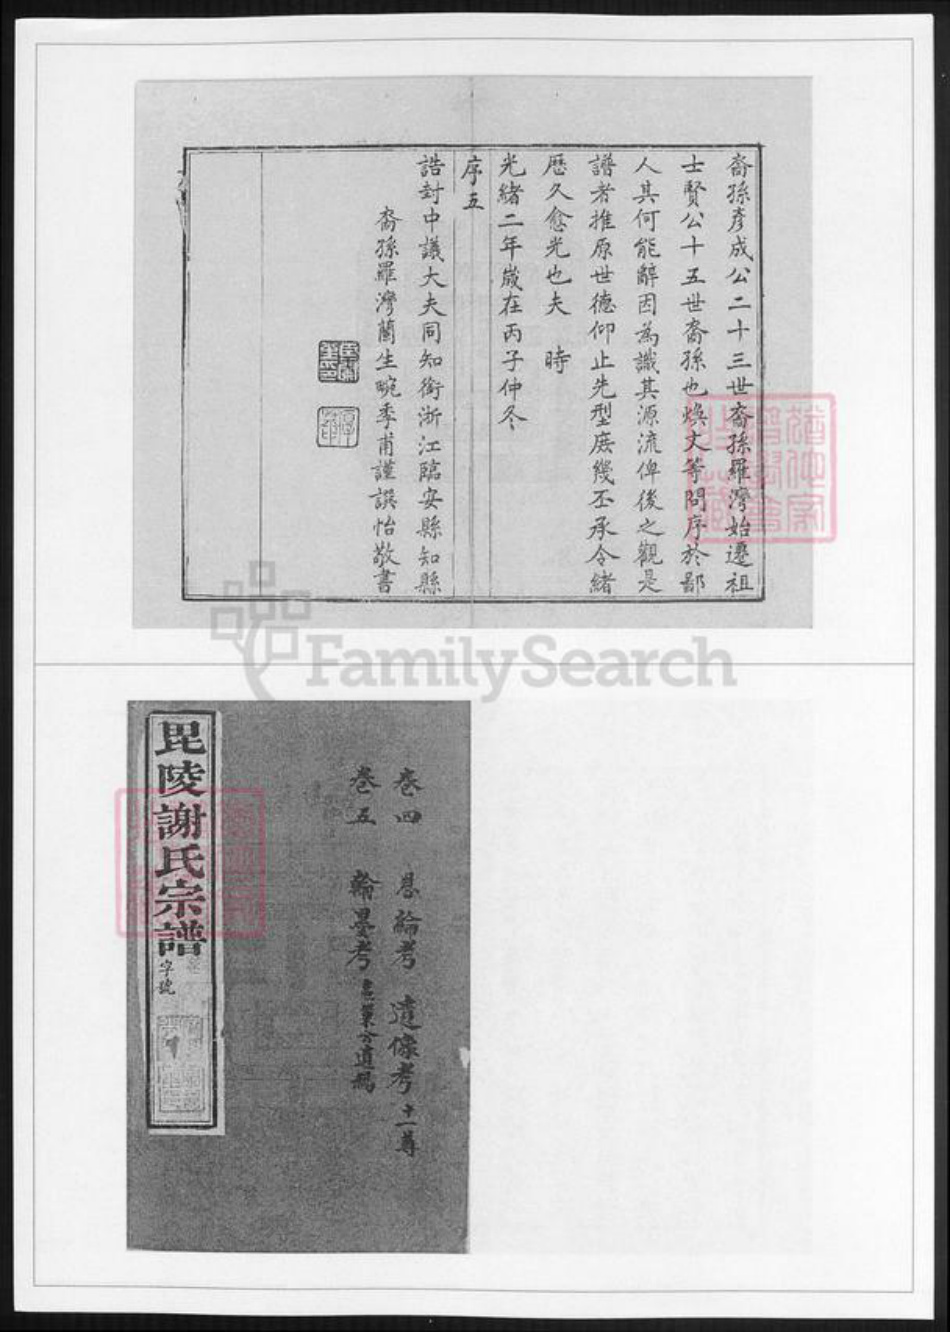 裔孫彥成公二十三世裔孫羅灣始遷祖
士賢公十五世裔孫也煥文等問序於鄙
人其何能辭因為識其源流俾後之觀是
譜者推原世德仰止先型庶幾丕承令緒
歷久愈光也夫 時
光緒二年歲在丙子仲冬
序五
誥封中議大夫同知銜浙江臨安縣知縣
裔孫羅灣蘭生畹季甫謹譔怡敬書
FamilySearch
卷四 恩綸考 遺像考 十一尊
卷五 翰墨考
毘陵謝氏宗譜
字號